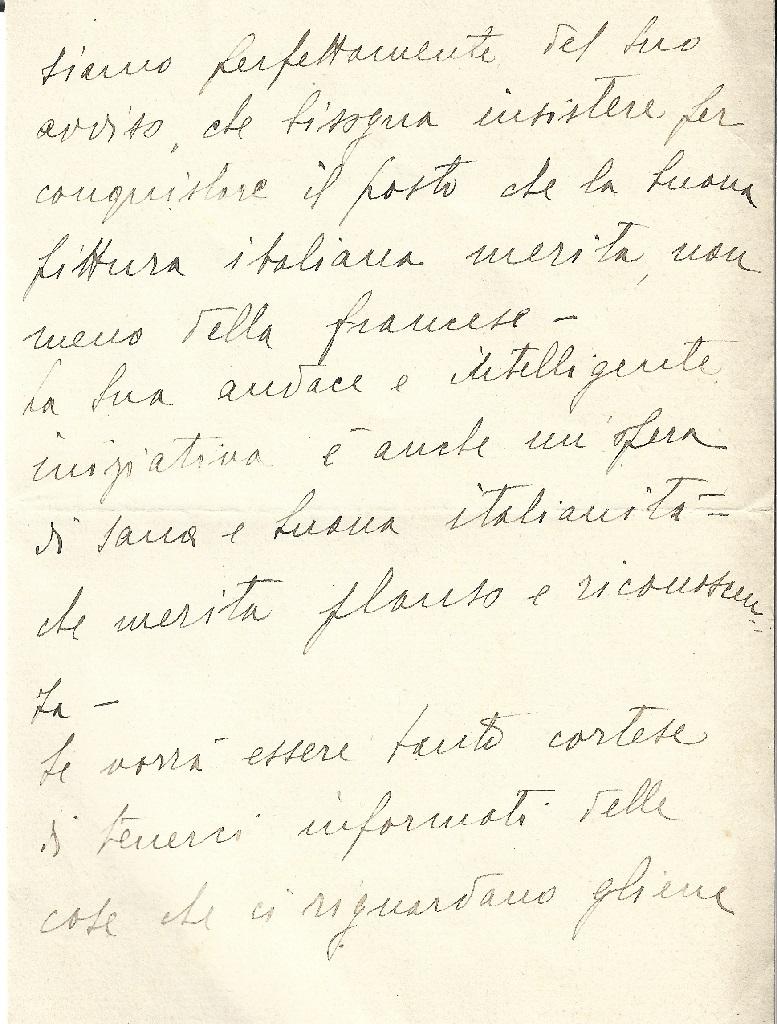 siamo perfettamente del suo
avviso, che bisogna insistere per
conquistare il posto che la buona
pittura italiana merita, non
meno della francese -
La Sua audace e intelligente
iniziativa è anche un'opera
di sana e buona italianità -
che merita plauso e riconoscen-
za -
Se vorrà essere tanto cortese
di tenerci informati delle
cose che ci riguardano gliene